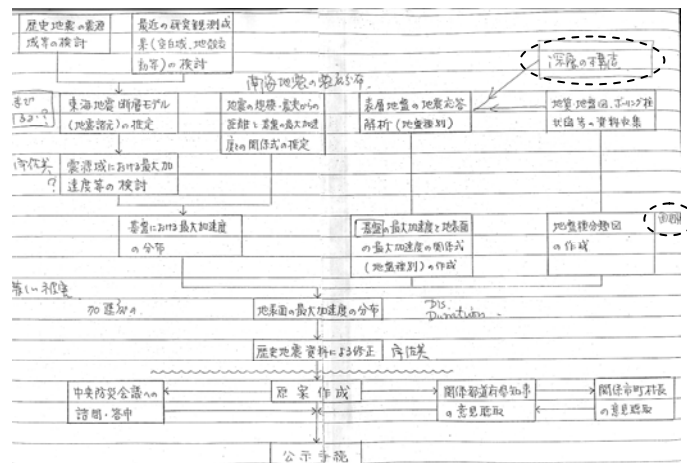 歴史地震の震源
域等の検討
最近の研究観測成
果(空白域、地殻変
動等)の検討
深層の構造
東海地震断層モデル
(地震諸元)の推定
地震の規模・震央からの
距離と基盤の最大加速
度との関係式の推定
表層地盤の地震応答
解析(地盤種別)
地質・地盤図、ボーリング柱
状図等の資料収集
宇佐美
?
震源域における最大加
速度等の検討
基盤における最大加速度
の分布
基盤の最大加速度と地表面
の最大加速度の関係式
(地盤種別)の作成
地盤種分類図
の作成
著しい被害
加速度
地表面の最大加速度の分布
Dis.
Duration
歴史地震資料による修正
宇佐美
中央防災会議への
諮問・答申
原案作成
関係都道府県知事
の意見聴取
関係市町村長
の意見聴取
公示手続